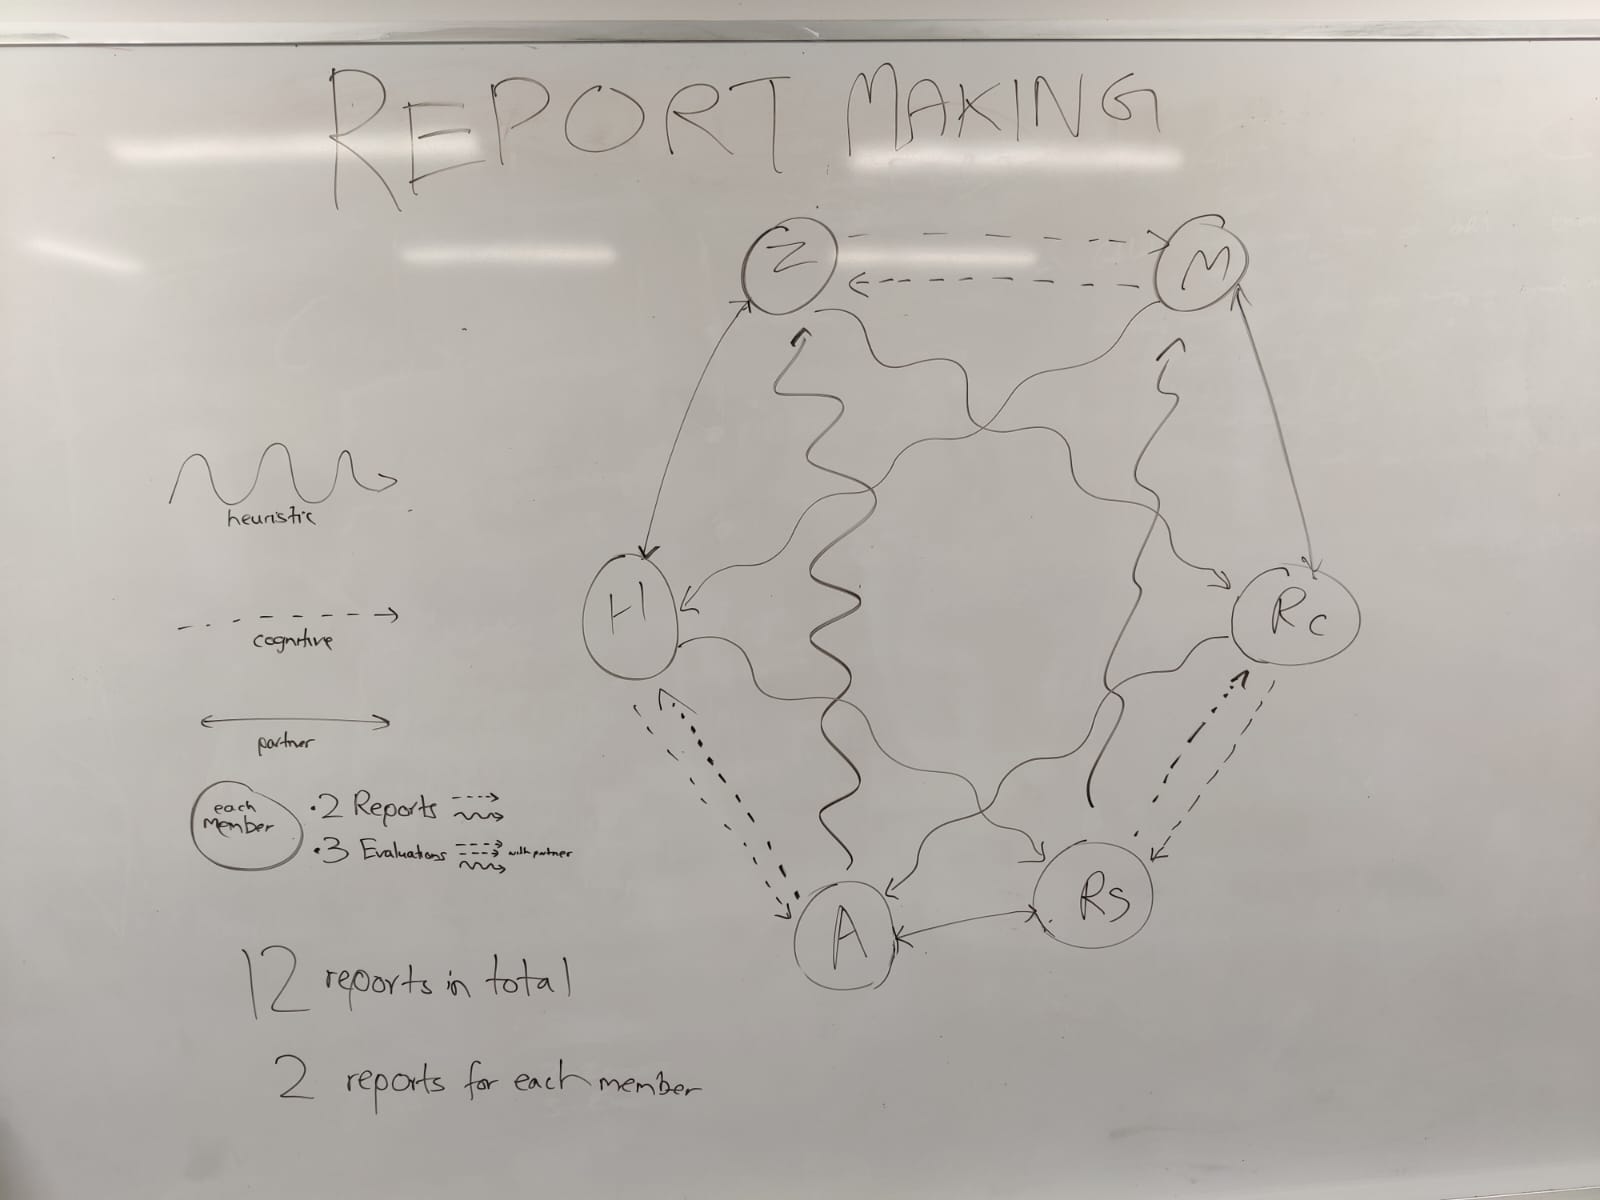 REPORT MAKING
Z
M
heuristic
H
Rc
cognitive
partner
each
member
•2 Reports
•3 Evaluations with partner
A
Rs
12 reports in total
2 reports for each member